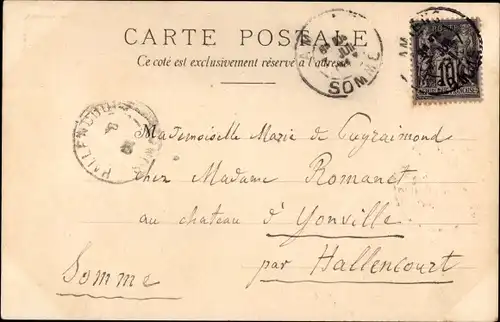 CARTE POSTALE
Ce côté est exclusivement réservé à l'adresse
AMIENS
SOMME
10
HALLENCOURT
Mademoiselle Marie de Puyraimond
chez Madame Romanet
au chateau d'Yonville
par Hallencourt
Somme